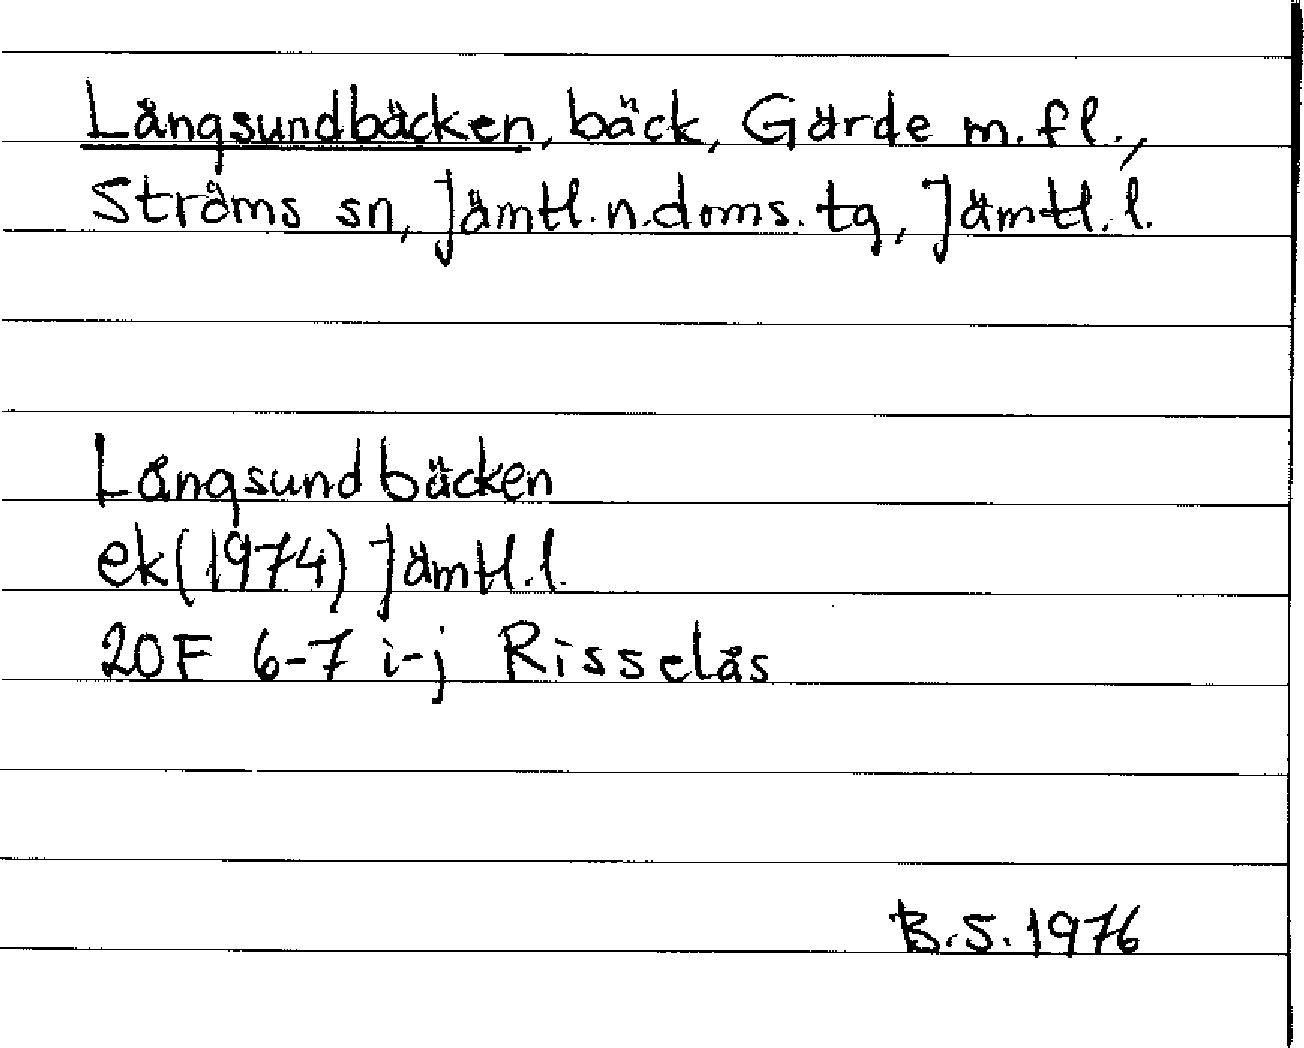 Långsundbäcken, bäck, Gärde m.fl.,
Ströms sn, Jämtl.n.doms.tg, Jämtl.l.
Långsundbäcken
ek(1974) Jämtl.l.
20F 6-7 i-j Risselås
B.S.1976